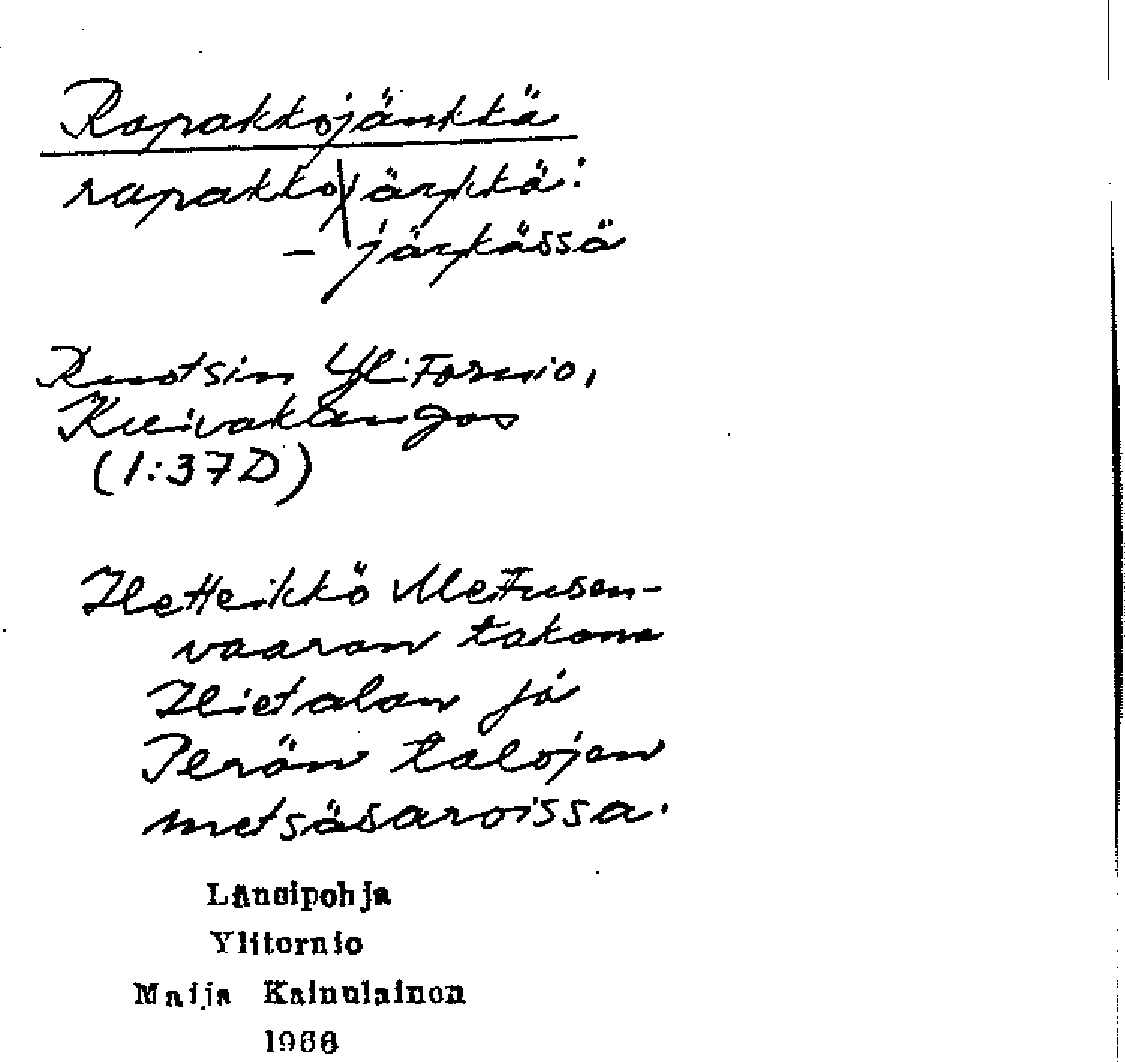 Rapakkojänkkä
rapakkojäŋkkä:
– jäŋkässä
Ruotsin Ylitornio,
Kuivakangas
(1:37D)
Hetteikkö Metusen-
vaaran takana
Hietalan ja
Perän talojen
metsäsaroissa.
Länsipohja
Ylitornio
Maija Kainulainen
1966